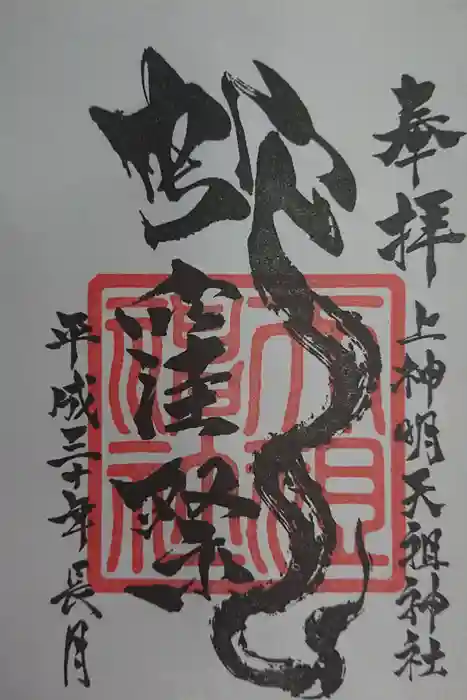 奉拝
上神明天祖神社
蛇窪祭
天祖神社
平成三十年長月